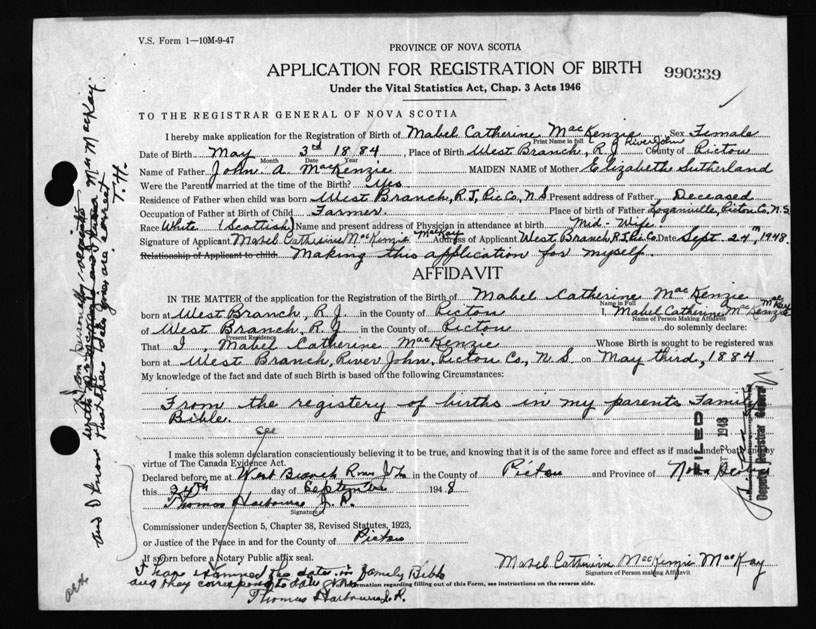 V.S. Form 1—10M-9-47
PROVINCE OF NOVA SCOTIA
APPLICATION FOR REGISTRATION OF BIRTH 990339
Under the Vital Statistics Act, Chap. 3 Acts 1946
TO THE REGISTRAR GENERAL OF NOVA SCOTIA
I hereby make application for the Registration of Birth of Mabel Catherine MacKenzie Sex Female
Print Name in full
Date of Birth May 3rd 1884, Place of Birth West Branch, R.J. River John County of Pictou
Month Date Year
Name of Father John A. MacKenzie MAIDEN NAME of Mother Elizabeth Sutherland
Were the Parents married at the time of Birth? Yes
Residence of Father when child was born West Branch, R.J, Pic Co, N.S. Present address of Father Deceased
Occupation of Father at Birth of Child Farmer Place of birth of Father Loganville, Pictou Co. N.S.
Race White (Scottish) Name and present address of Physician in attendance at birth Mid-Wife.
Signature of Applicant Mabel Catherine MacKenzie MacKay Address of Applicant West Branch, R.J, Pic Co Date Sept. 24th, 1948.
Relationship of Applicant to child Making this application for myself.
AFFIDAVIT
IN THE MATTER of the application for the Registration of the Birth of Mabel Catherine MacKenzie
Name in Full
born at West Branch, R.J. in the County of Pictou I, Mabel Catherine MacKenzie MacKay
Name of Person Making Affidavit
of West Branch, R.J. in the County of Pictou do solemnly declare:
Present Residence
That I, Mabel Catherine MacKenzie Whose Birth is sought to be registered was
born at West Branch, River John, Pictou Co., N.S. on May third, 1884
My knowledge of the fact and date of such Birth is based on the following Circumstances:
From the registery of births in my parents Family
Bible.
I make this solemn declaration conscientiously believing it to be true, and knowing that it is of the same force and effect as if made under oath by
virtue of The Canada Evidence Act.
Declared before me at West Branch River John in the County of Pictou and Province of Nova Scotia
this 24th day of September 1948
Thomas Harbourne J.P.
Signature
Commissioner under Section 5, Chapter 38, Revised Statutes, 1923,
or Justice of the Peace in and for the County of Pictou
If sworn before a Notary Public affix seal.
Mabel Catherine MacKenzie MacKay
Signature of Person making Affidavit
I have examined the dates in family Bible
and they correspond to date
For information regarding filling out of this Form, see instructions on the reverse side.
Thomas Harbourne J.P.
and I know that these dates given are correct
T.H.
FILED
1948
Deputy Registrar General